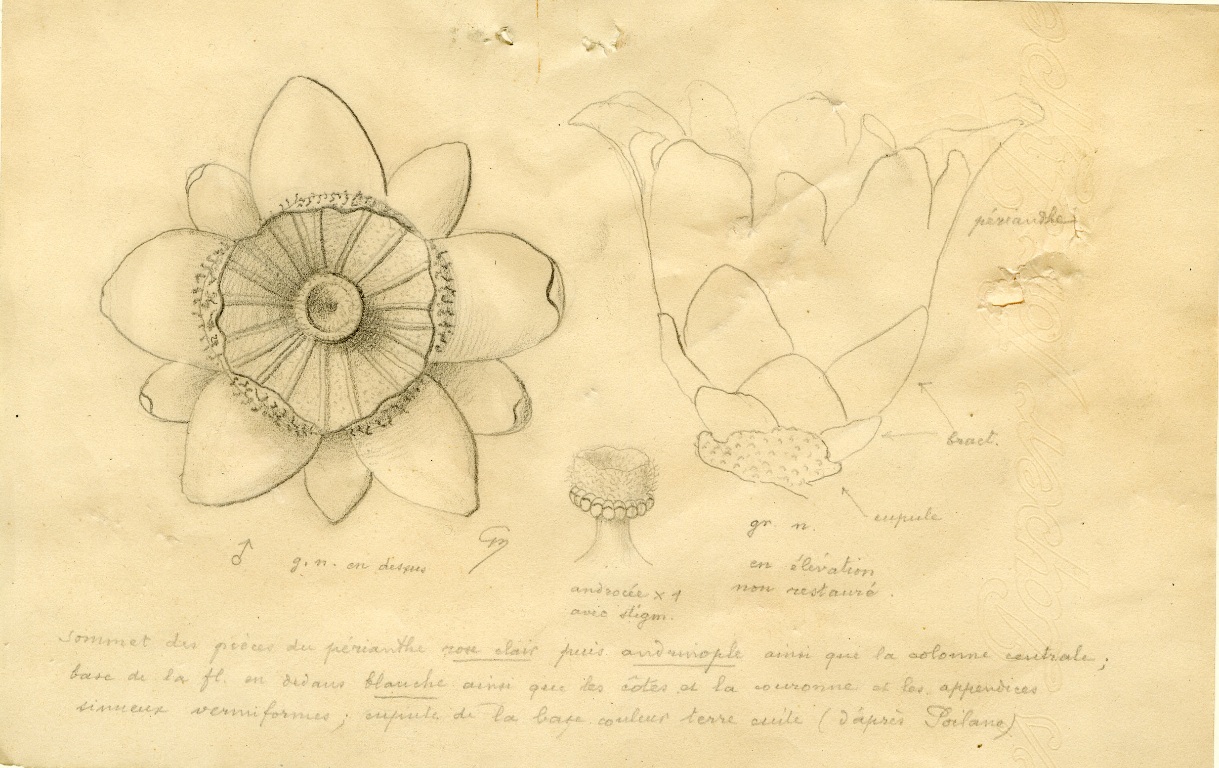 périanthe
bract.
cupule
♂ g. n. en dessus
gr. n.
en élévation
non restauré.
androcée x 4
avec stigm.
Sommet des pièces du périanthe rose clair puis andrinople ainsi que la colonne centrale ;
base de la fl. en dedans blanche ainsi que les côtes et la couronne et les appendices
sinueux vermiformes ; cupule de la base couleur terre cuite (d'après Poilane)